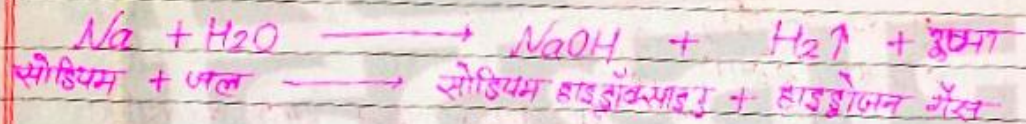 Na + H2O ⟶ NaOH + H2↑ + ऊष्मा
सोडियम + जल ⟶ सोडियम हाइड्रॉक्साइड + हाइड्रोजन गैस